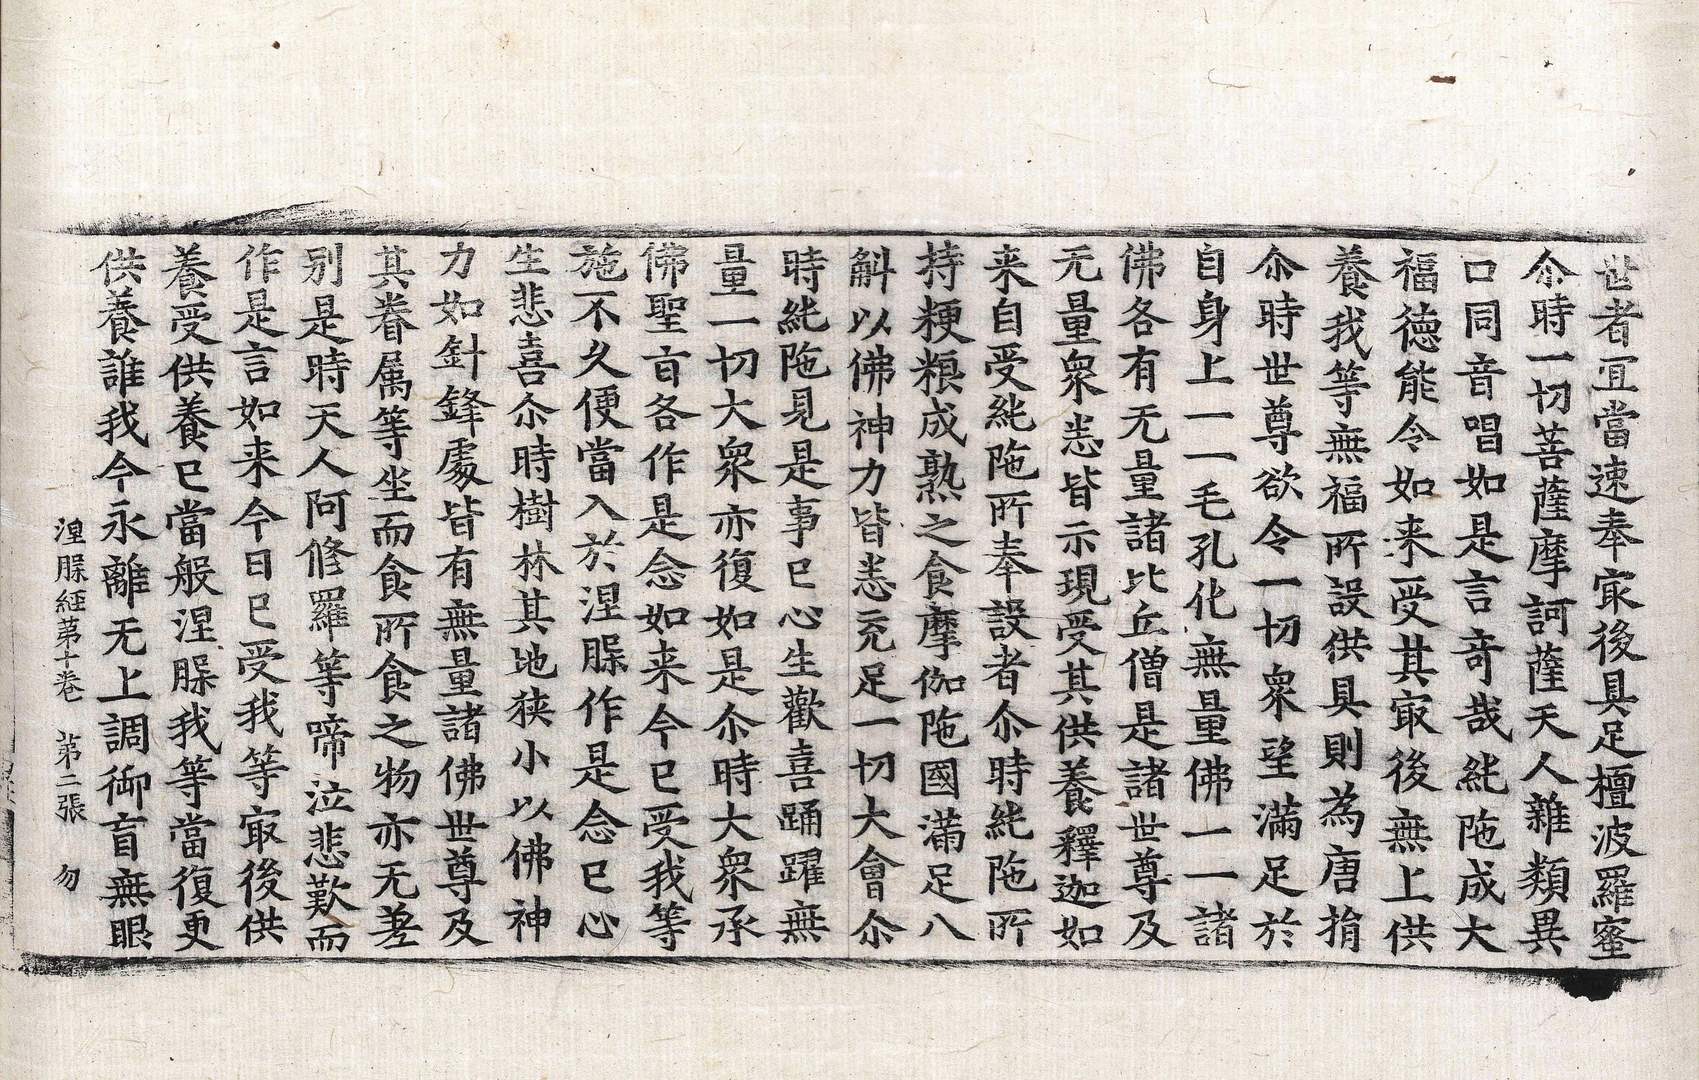 世者宜當速奉冣後具足檀波羅蜜
尒時一切菩薩摩訶薩天人雜類異
口同音唱如是言奇哉純陁成大
福德能令如来受其冣後無上供
養我等無福所設供具則為唐捐
尒時世尊欲令一切衆望滿足於
自身上一一毛孔化無量佛一一諸
佛各有无量諸比丘僧是諸世尊及
无量衆悉皆示現受其供養釋迦如
来自受純陁所奉設者尒時純陁所
持粳粮成熟之食摩伽陁國滿足八
斛以佛神力皆悉充足一切大會尒
時純陁見是事已心生歡喜踊躍無
量一切大衆亦復如是尒時大衆承
佛聖旨各作是念如来今已受我等
施不久便當入於涅槃作是念已心
生悲喜尒時樹林其地狹小以佛神
力如針鋒處皆有無量諸佛世尊及
其眷屬等坐而食所食之物亦无差
別是時天人阿修羅等啼泣悲歎而
作是言如来今日已受我等冣後供
養受供養已當般涅槃我等當復更
供養誰我今永離无上調御盲無眼
涅槃経第十卷 第二張 勿